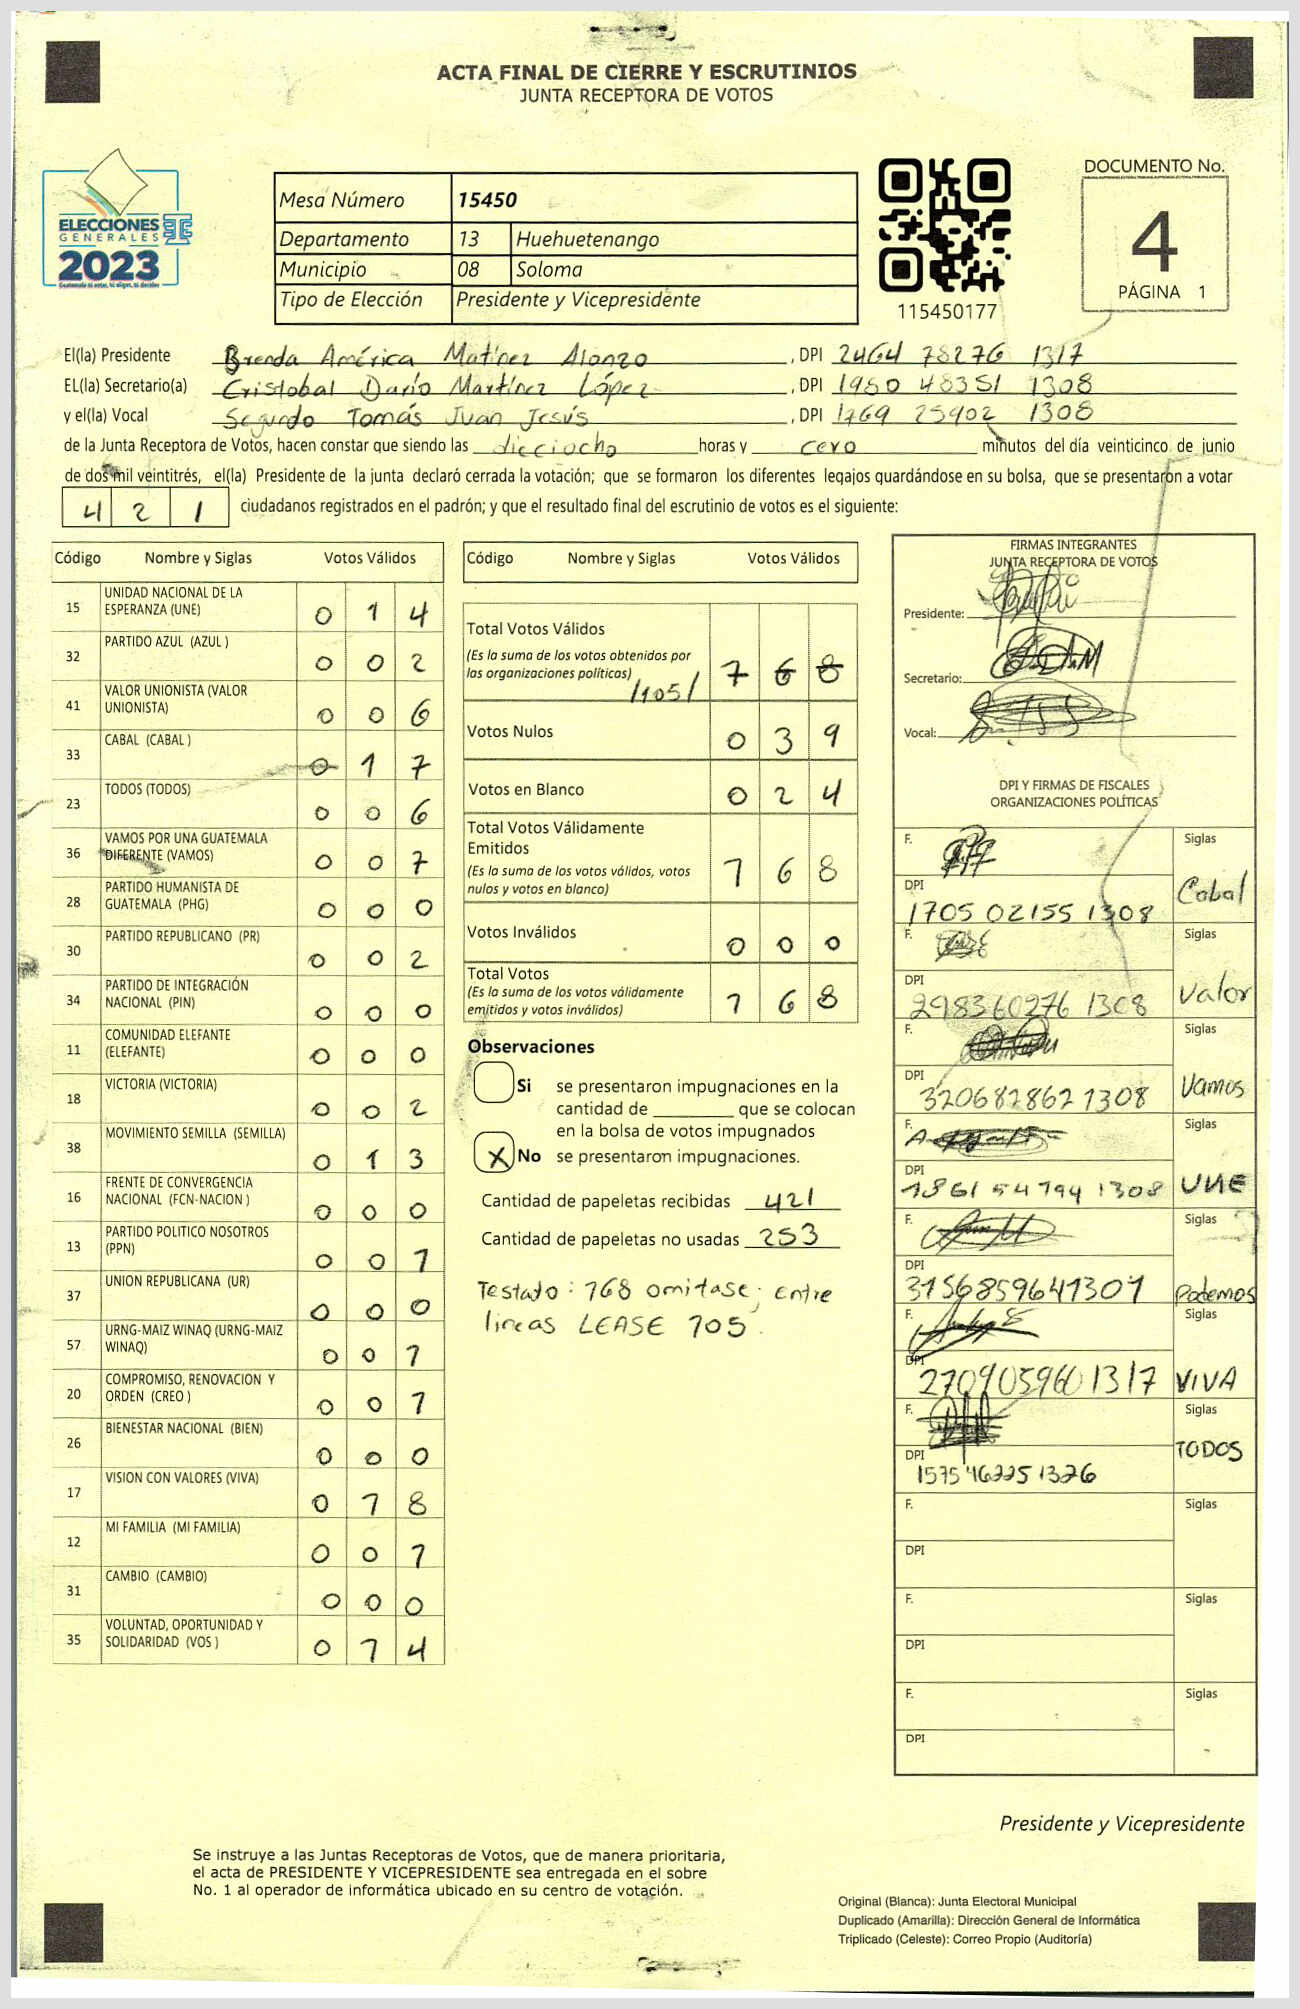 ACTA FINAL DE CIERRE Y ESCRUTINIOS
JUNTA RECEPTORA DE VOTOS
ELECCIONES
GENERALES
2023
Mesa Número 15450
Departamento 13 Huehuetenango
Municipio 08 Soloma
Tipo de Elección Presidente y Vicepresidente
115450177
DOCUMENTO No.
4
PÁGINA 1
El(la) Presidente Brenda América Matínez Alonzo, DPI 2464 78276 1317
EL(la) Secretario(a) Cristobal Darío Martínez López, DPI 1980 48351 1308
y el(la) Vocal Segundo Tomás Juan Jesús, DPI 1769 25902 1308
de la Junta Receptora de Votos, hacen constar que siendo las dieciocho horas y cero minutos del día veinticinco de junio
de dos mil veintitrés, el(la) Presidente de la junta declaró cerrada la votación; que se formaron los diferentes legajos guardándose en su bolsa, que se presentaron a votar
421 ciudadanos registrados en el padrón; y que el resultado final del escrutinio de votos es el siguiente:
Código Nombre y Siglas Votos Válidos
15 UNIDAD NACIONAL DE LA
ESPERANZA (UNE) 0 1 4
32 PARTIDO AZUL (AZUL ) 0 0 2
41 VALOR UNIONISTA (VALOR
UNIONISTA) 0 0 6
33 CABAL (CABAL ) 0 1 7
23 TODOS (TODOS) 0 0 6
36 VAMOS POR UNA GUATEMALA
DIFERENTE (VAMOS) 0 0 7
28 PARTIDO HUMANISTA DE
GUATEMALA (PHG) 0 0 0
30 PARTIDO REPUBLICANO (PR) 0 0 2
34 PARTIDO DE INTEGRACIÓN
NACIONAL (PIN) 0 0 0
11 COMUNIDAD ELEFANTE
(ELEFANTE) 0 0 0
18 VICTORIA (VICTORIA) 0 0 2
38 MOVIMIENTO SEMILLA (SEMILLA) 0 1 3
16 FRENTE DE CONVERGENCIA
NACIONAL (FCN-NACION ) 0 0 0
13 PARTIDO POLITICO NOSOTROS
(PPN) 0 0 1
37 UNION REPUBLICANA (UR) 0 0 0
57 URNG-MAIZ WINAQ (URNG-MAIZ
WINAQ) 0 0 1
20 COMPROMISO, RENOVACION Y
ORDEN (CREO ) 0 0 1
26 BIENESTAR NACIONAL (BIEN) 0 0 0
17 VISION CON VALORES (VIVA) 0 1 8
12 MI FAMILIA (MI FAMILIA) 0 0 1
31 CAMBIO (CAMBIO) 0 0 0
35 VOLUNTAD, OPORTUNIDAD Y
SOLIDARIDAD (VOS ) 0 1 4
Código Nombre y Siglas Votos Válidos
Total Votos Válidos
(Es la suma de los votos obtenidos por
las organizaciones políticas) 1 6 8
/105/
Votos Nulos 0 3 9
Votos en Blanco 0 2 4
Total Votos Válidamente
Emitidos
(Es la suma de los votos válidos, votos
nulos y votos en blanco) 1 6 8
Votos Inválidos 0 0 0
Total Votos
(Es la suma de los votos válidamente
emitidos y votos inválidos) 1 6 8
Observaciones
Si se presentaron impugnaciones en la
cantidad de ________ que se colocan
en la bolsa de votos impugnados
X No se presentaron impugnaciones.
Cantidad de papeletas recibidas 421
Cantidad de papeletas no usadas 253
Testato: 168 omitase; entre
lineas LEASE 105.
FIRMAS INTEGRANTES
JUNTA RECEPTORA DE VOTOS
Presidente:
Secretario:
Vocal:
DPI Y FIRMAS DE FISCALES
ORGANIZACIONES POLÍTICAS
F. Siglas
DPI 1705 02155 1308 Cabal
F. Siglas
DPI 298360276 1308 Valor
F. Siglas
DPI 320682862 1308 Vamos
F. Siglas
DPI 1861 54794 1308 UNE
F. Siglas
DPI 3156859641301 Podemos
F. Siglas
DPI 2709059601317 VIVA
F. Siglas
DPI 1575462251326 TODOS
F. Siglas
DPI
F. Siglas
DPI
F. Siglas
DPI
Presidente y Vicepresidente
Se instruye a las Juntas Receptoras de Votos, que de manera prioritaria,
el acta de PRESIDENTE Y VICEPRESIDENTE sea entregada en el sobre
No. 1 al operador de informática ubicado en su centro de votación.
Original (Blanca): Junta Electoral Municipal
Duplicado (Amarilla): Dirección General de Informática
Triplicado (Celeste): Correo Propio (Auditoría)